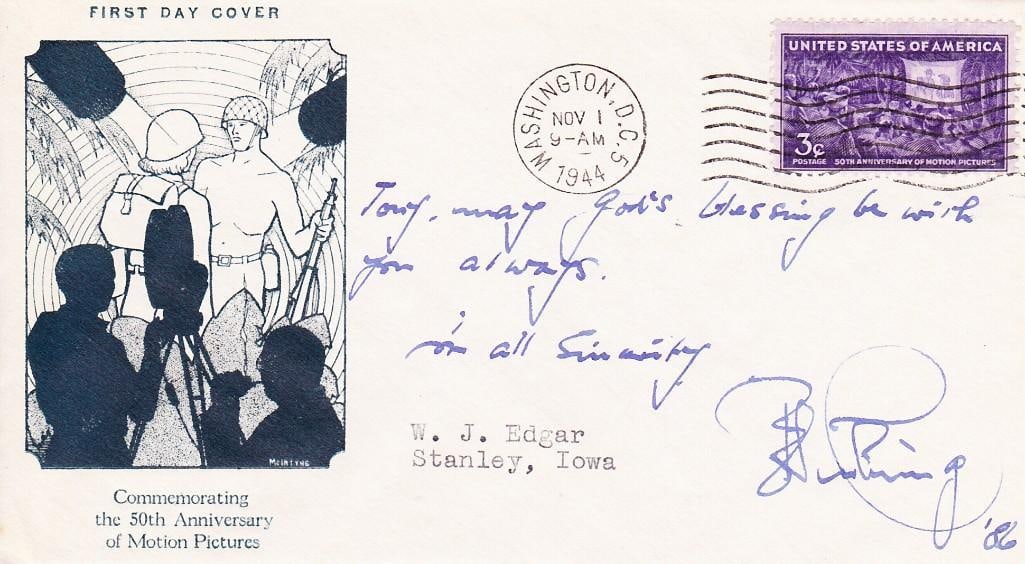 FIRST DAY COVER
UNITED STATES OF AMERICA
3¢
POSTAGE 50TH ANNIVERSARY OF MOTION PICTURES
WASHINGTON, D.C. 5
NOV 1
9-AM
1944
Tony, may God's blessing be with
you always.
in all Sincerity
W. J. Edgar
Stanley, Iowa
'86
McINTYRE
Commemorating
the 50th Anniversary
of Motion Pictures